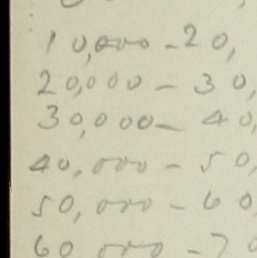 10,000 - 20,
20,000 - 30,
30,000 - 40,
40,000 - 50,
50,000 - 60
60 000 - 70